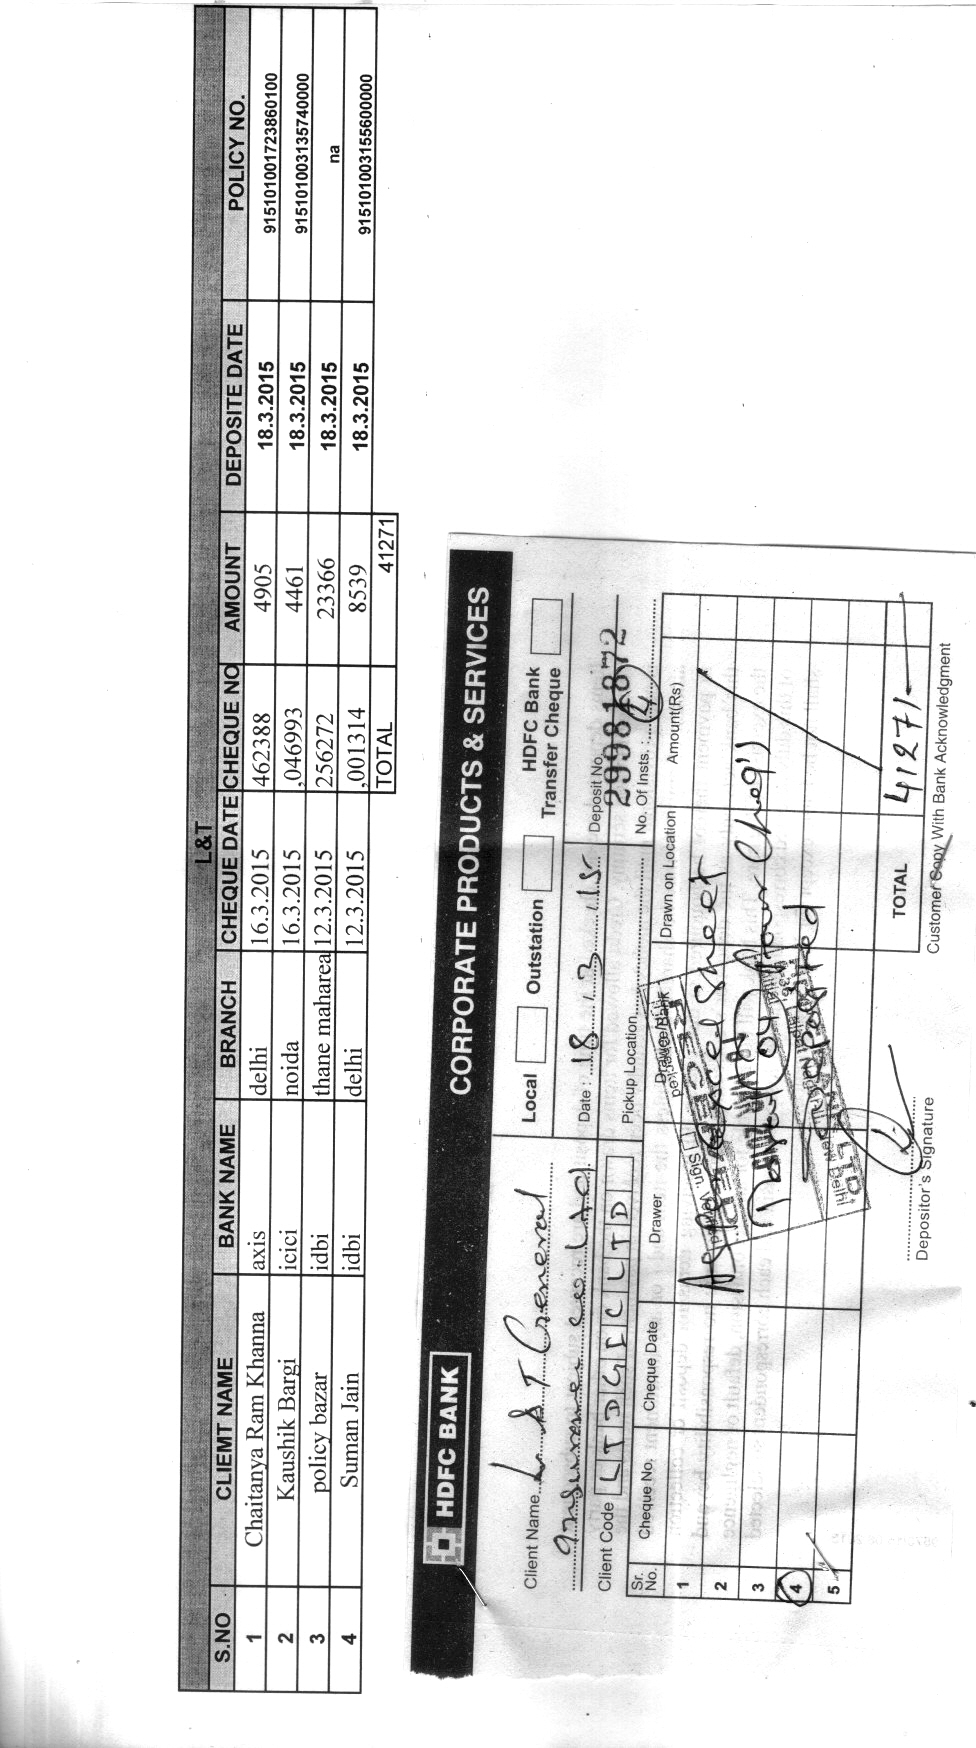 L&T
S.NO CLIEMT NAME BANK NAME BRANCH CHEQUE DATE CHEQUE NO AMOUNT DEPOSITE DATE POLICY NO.
1 Chaitanya Ram Khanna axis delhi 16.3.2015 462388 4905 18.3.2015 915101001723860100
2 Kaushik Bargi icici noida 16.3.2015 ,046993 4461 18.3.2015 915101003135740000
3 policy bazar idbi thane maharea 12.3.2015 256272 23366 18.3.2015 na
4 Suman Jain idbi delhi 12.3.2015 ,001314 8539 18.3.2015 915101003155600000
TOTAL 41271
HDFC BANK CORPORATE PRODUCTS & SERVICES
Client Name L & T General
Insurance co. Ltd
Local Outstation HDFC Bank Transfer Cheque
Date : 18.3.15 Deposit No. 29981872
Client Code LTDGICLTD Pickup Location No. Of Insts. : 4
Sr. No. Cheque No. Cheque Date Drawer Drawee/Bank Drawn on Location Amount(Rs)
1
2 As Per Excel Sheet
3 Total (04) Four Cheq's
4 Deposited
5
TOTAL 41271/-
Depositor's Signature
Customer Copy With Bank Acknowledgment